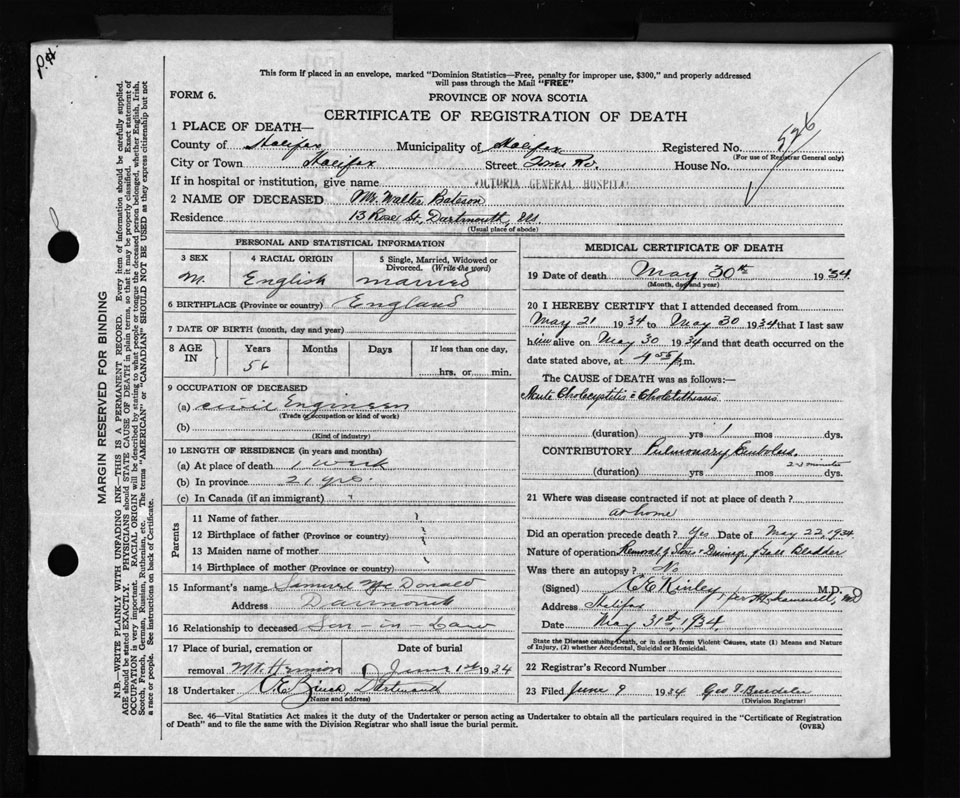 P.H.
This form if placed in an envelope, marked "Dominion Statistics—Free, penalty for improper use, $300," and properly addressed
will pass through the Mail "FREE"
FORM 6.
PROVINCE OF NOVA SCOTIA
CERTIFICATE OF REGISTRATION OF DEATH
526
1 PLACE OF DEATH—
County of Halifax Municipality of Halifax Registered No.
(For use of Registrar General only)
City or Town Halifax Street House No.
If in hospital or institution, give name VICTORIA GENERAL HOSPITAL
2 NAME OF DECEASED Mr. Walter Bateson
Residence 13 Rose St, Dartmouth, NS
(Usual place of abode)
PERSONAL AND STATISTICAL INFORMATION
3 SEX 4 RACIAL ORIGIN 5 Single, Married, Widowed or
Divorced. (Write the word)
M. English married
6 BIRTHPLACE (Province or country) England
7 DATE OF BIRTH (month, day and year)
8 AGE IN Years Months Days If less than one day,
56 hrs. or min.
9 OCCUPATION OF DECEASED
(a) Civil Engineer
(Trade or occupation or kind of work)
(b)
(Kind of industry)
10 LENGTH OF RESIDENCE (in years and months)
(a) At place of death 1 week
(b) In province 21 yrs.
(c) In Canada (if an immigrant) ?
Parents
11 Name of father ?
12 Birthplace of father (Province or country) ?
13 Maiden name of mother ?
14 Birthplace of mother (Province or country) ?
15 Informant's name Samuel McDonald
Address Dartmouth
16 Relationship to deceased Son-in-Law
17 Place of burial, cremation or Date of burial
removal Mt. Hermon June 1st 1934
18 Undertaker Dartmouth
(Name and address)
MEDICAL CERTIFICATE OF DEATH
19 Date of death May 30th 1934.
(Month, day and year)
20 I HEREBY CERTIFY that I attended deceased from
May 21 1934 to May 30 1934 that I last saw
him alive on May 30 1934 and that death occurred on the
date stated above, at 4.55 p.m.
The CAUSE of DEATH was as follows:—
Acute Cholecystitis c Cholelithiasis.
(duration) yrs 1 mos dys.
CONTRIBUTORY Pulmonary Embolus.
2-3 minutes
(duration) yrs mos dys.
21 Where was disease contracted if not at place of death?
at home
Did an operation precede death? Yes Date of May 22, 1934
Nature of operation Removal of Stones & Drainage Gall Bladder
Was there an autopsy? No
(Signed) C E Kinley M.D.
Address Halifax per MD
Date May 31st, 1934.
State the Disease causing Death, or in death from Violent Causes, state (1) Means and Nature
of Injury, (2) whether Accidental, Suicidal or Homicidal.
22 Registrar's Record Number
23 Filed June 9 1934 Geo
(Division Registrar)
Sec. 46—Vital Statistics Act makes it the duty of the Undertaker or person acting as Undertaker to obtain all the particulars required in the "Certificate of Registration
of Death" and to file the same with the Division Registrar who shall issue the burial permit.
(OVER)
MARGIN RESERVED FOR BINDING
N.B.—WRITE PLAINLY WITH UNFADING INK—THIS IS A PERMANENT RECORD. Every item of information should be carefully supplied.
AGE should be stated EXACTLY. PHYSICIANS should STATE CAUSE OF DEATH in plain terms, so that it may be properly classified. Exact statement of
OCCUPATION is very important. RACIAL ORIGIN will be described by stating to what people or tongue the deceased person belonged, whether English, Irish,
Scotch, French, German, Russian, Ruthenian, etc. The terms "AMERICAN" or "CANADIAN" SHOULD NOT BE USED as they express citizenship but not
a race or people. See instructions on back of Certificate.